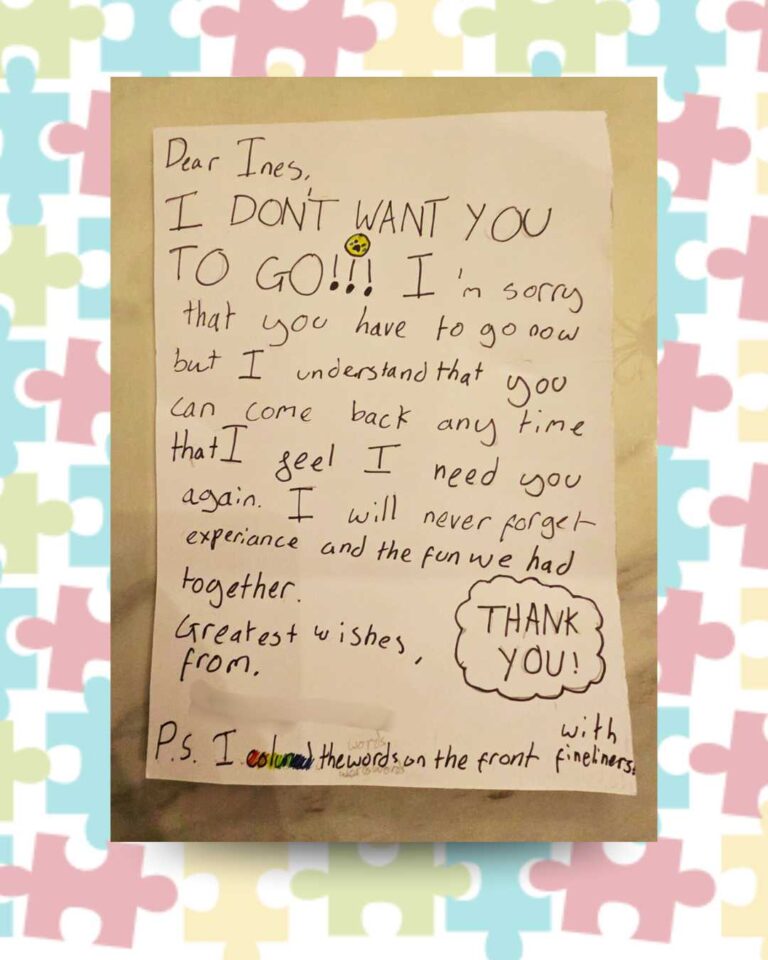 Dear Ines,
I DON'T WANT YOU
TO GO!!! I'm sorry
that you have to go now
but I understand that you
can come back any time
that I feel I need you
again. I will never forget
experiance and the fun we had
together.
Greatest wishes,
from.
THANK
YOU!
with
P.S. I coloured the words on the front fineliners.